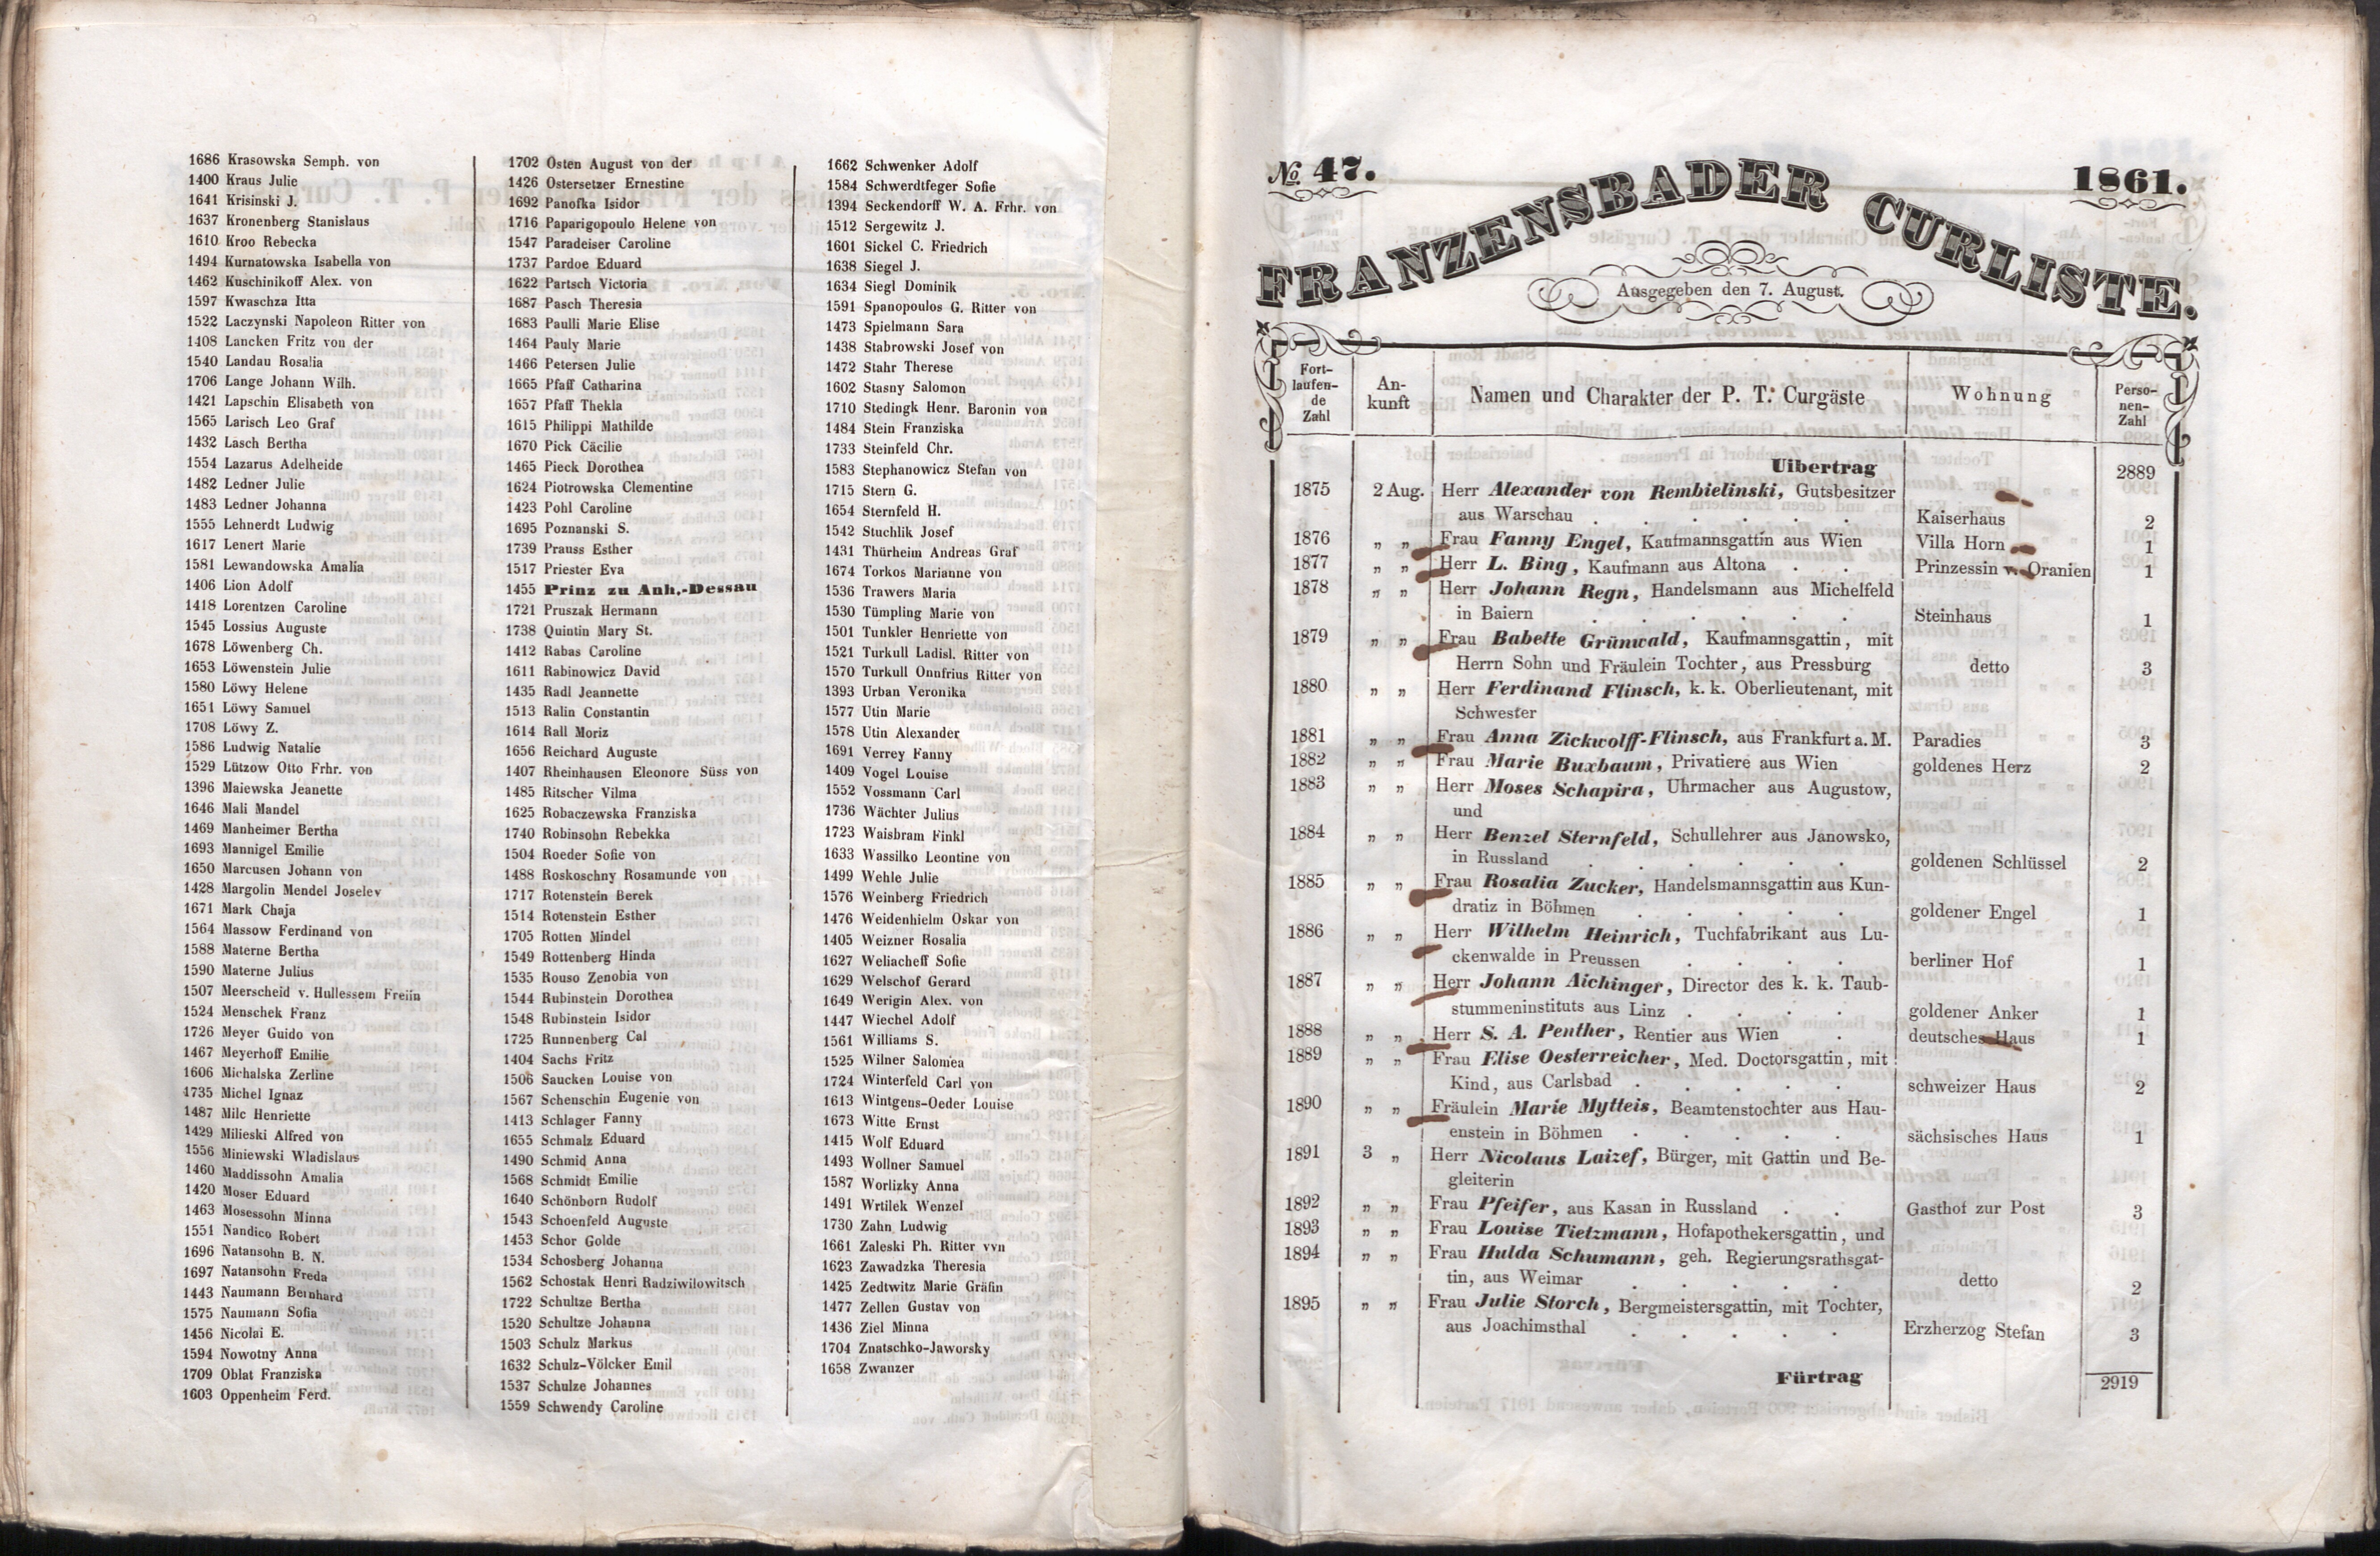 1686 Krasowska Semph. von
1400 Kraus Julie
1641 Krisinski J.
1637 Kronenberg Stanislaus
1610 Kroo Rebecka
1494 Kurnatowska Isabella von
1462 Kuschinikoff Alex. von
1597 Kwaschza Itta
1522 Laczynski Napoleon Ritter von
1408 Lancken Fritz von der
1540 Landau Rosalia
1706 Lange Johann Wilh.
1421 Lapschin Elisabeth von
1565 Larisch Leo Graf
1432 Lasch Bertha
1554 Lazarus Adelheide
1482 Ledner Julie
1483 Ledner Johanna
1555 Lehnerdt Ludwig
1617 Lenert Marie
1581 Lewandowska Amalia
1406 Lion Adolf
1418 Lorentzen Caroline
1545 Lossius Auguste
1678 Löwenberg Ch.
1653 Löwenstein Julie
1580 Löwy Helene
1651 Löwy Samuel
1708 Löwy Z.
1586 Ludwig Natalie
1529 Lützow Otto Frhr. von
1396 Maiewska Jeanette
1646 Mali Mandel
1469 Manheimer Bertha
1693 Mannigel Emilie
1650 Marcusen Johann von
1428 Margolin Mendel Joselev
1671 Mark Chaja
1564 Massow Ferdinand von
1588 Materne Bertha
1590 Materne Julius
1507 Meerscheid v. Hullessem Freiin
1524 Menschek Franz
1726 Meyer Guido von
1467 Meyerhoff Emilie
1606 Michalska Zerline
1735 Michel Ignaz
1487 Milc Henriette
1429 Milieski Alfred von
1556 Miniewski Wladislaus
1460 Maddissohn Amalia
1420 Moser Eduard
1463 Mosessohn Minna
1551 Nandico Robert
1696 Natansohn B. N.
1697 Natansohn Freda
1443 Naumann Bernhard
1575 Naumann Sofia
1456 Nicolai E.
1594 Nowotny Anna
1709 Oblat Franziska
1603 Oppenheim Ferd.
1702 Osten August von der
1426 Ostersetzer Ernestine
1692 Panofka Isidor
1716 Paparigopoulo Helene von
1547 Paradeiser Caroline
1737 Pardoe Eduard
1622 Partsch Victoria
1687 Pasch Theresia
1683 Paulli Marie Elise
1464 Pauly Marie
1466 Petersen Julie
1665 Pfaff Catharina
1657 Pfaff Thekla
1615 Philippi Mathilde
1670 Pick Cäcilie
1465 Pieck Dorothea
1624 Piotrowska Clementine
1423 Pohl Caroline
1695 Poznanski S.
1739 Prauss Esther
1517 Priester Eva
1455 Prinz zu Anh.-Dessau
1721 Pruszak Hermann
1738 Quintin Mary St.
1412 Rabas Caroline
1611 Rabinowicz David
1435 Radl Jeannette
1513 Ralin Constantin
1614 Rall Moriz
1656 Reichard Auguste
1407 Rheinhausen Eleonore Süss von
1485 Ritscher Vilma
1625 Robaczewska Franziska
1740 Robinsohn Rebekka
1504 Roeder Sofie von
1488 Roskoschny Rosamunde von
1717 Rotenstein Berek
1514 Rotenstein Esther
1705 Rotten Mindel
1549 Rottenberg Hinda
1535 Rouso Zenobia von
1544 Rubinstein Dorothea
1548 Rubinstein Isidor
1725 Runnenberg Cal
1404 Sachs Fritz
1506 Saucken Louise von
1567 Schenschin Eugenie von
1413 Schlager Fanny
1655 Schmalz Eduard
1490 Schmid Anna
1568 Schmidt Emilie
1640 Schönborn Rudolf
1543 Schoenfeld Auguste
1453 Schor Golde
1534 Schosberg Johanna
1562 Schostak Henri Radziwilowitsch
1722 Schultze Bertha
1520 Schultze Johanna
1503 Schulz Markus
1632 Schulz-Völcker Emil
1537 Schulze Johannes
1559 Schwendy Caroline
1662 Schwenker Adolf
1584 Schwerdtfeger Sofie
1394 Seckendorff W. A. Frhr. von
1512 Sergewitz J.
1601 Sickel C. Friedrich
1638 Siegel J.
1634 Siegl Dominik
1591 Spanopoulos G. Ritter von
1473 Spielmann Sara
1438 Stabrowski Josef von
1472 Stahr Therese
1602 Stasny Salomon
1710 Stedingk Henr. Baronin von
1484 Stein Franziska
1733 Steinfeld Chr.
1583 Stephanowicz Stefan von
1715 Stern G.
1654 Sternfeld H.
1542 Stuchlik Josef
1431 Thürheim Andreas Graf
1674 Torkos Marianne von
1536 Trawers Maria
1530 Tümpling Marie von
1501 Tunkler Henriette von
1521 Turkull Ladisl. Ritter von
1570 Turkull Onnfrius Ritter von
1393 Urban Veronika
1577 Utin Marie
1578 Utin Alexander
1691 Verrey Fanny
1409 Vogel Louise
1552 Vossmann Carl
1736 Wächter Julius
1723 Waisbram Finkl
1633 Wassilko Leontine von
1499 Wehle Julie
1576 Weinberg Friedrich
1476 Weidenhielm Oskar von
1405 Weizner Rosalia
1627 Weliacheff Sofie
1629 Welschof Gerard
1649 Werigin Alex. von
1447 Wiechel Adolf
1561 Williams S.
1525 Wilner Salomea
1724 Winterfeld Carl von
1613 Wintgens-Oeder Louise
1673 Witte Ernst
1415 Wolf Eduard
1493 Wollner Samuel
1587 Worlizky Anna
1491 Wrtilek Wenzel
1730 Zahn Ludwig
1661 Zaleski Ph. Ritter vvn
1623 Zawadzka Theresia
1425 Zedtwitz Marie Gräfin
1477 Zellen Gustav von
1436 Ziel Minna
1704 Znatschko-Jaworsky
1658 Zwanzer
№ 47. 1861.
FRANZENSBADER CURLISTE.
Ausgegeben den 7. August.
Fort-laufen-de Zahl An-kunft Namen und Charakter der P. T. Curgäste Wohnung Perso-nen-Zahl
Uibertrag 2889
1875 2 Aug. Herr Alexander von Rembielinski, Gutsbesitzer
aus Warschau . . . . . . Kaiserhaus 2
1876 „ „ Frau Fanny Engel, Kaufmannsgattin aus Wien Villa Horn 1
1877 „ „ Herr L. Bing, Kaufmann aus Altona . . Prinzessin v. Oranien 1
1878 „ „ Herr Johann Regn, Handelsmann aus Michelfeld
in Baiern . . . . . . Steinhaus 1
1879 „ „ Frau Babette Grünwald, Kaufmannsgattin, mit
Herrn Sohn und Fräulein Tochter, aus Pressburg detto 3
1880 „ „ Herr Ferdinand Flinsch, k. k. Oberlieutenant, mit
Schwester
1881 „ „ Frau Anna Zickwolff-Flinsch, aus Frankfurt a. M. Paradies 3
1882 „ „ Frau Marie Buxbaum, Privatiere aus Wien goldenes Herz 2
1883 „ „ Herr Moses Schapira, Uhrmacher aus Augustow,
und
1884 „ „ Herr Benzel Sternfeld, Schullehrer aus Janowsko,
in Russland . . . . . . goldenen Schlüssel 2
1885 „ „ Frau Rosalia Zucker, Handelsmannsgattin aus Kun-
dratiz in Böhmen . . . . . goldener Engel 1
1886 „ „ Herr Wilhelm Heinrich, Tuchfabrikant aus Lu-
ckenwalde in Preussen . . . . berliner Hof 1
1887 „ „ Herr Johann Aichinger, Director des k. k. Taub-
stummeninstituts aus Linz . . . . goldener Anker 1
1888 „ „ Herr S. A. Penther, Rentier aus Wien . deutsches Haus 1
1889 „ „ Frau Elise Oesterreicher, Med. Doctorsgattin, mit
Kind, aus Carlsbad . . . . . schweizer Haus 2
1890 „ „ Fräulein Marie Mytteis, Beamtenstochter aus Hau-
enstein in Böhmen . . . . . sächsisches Haus 1
1891 3 „ Herr Nicolaus Laizef, Bürger, mit Gattin und Be-
gleiterin
1892 „ „ Frau Pfeifer, aus Kasan in Russland . . Gasthof zur Post 3
1893 „ „ Frau Louise Tietzmann, Hofapothekersgattin, und
1894 „ „ Frau Hulda Schumann, geh. Regierungsrathsgat-
tin, aus Weimar . . . . . detto 2
1895 „ „ Frau Julie Storch, Bergmeistersgattin, mit Tochter,
aus Joachimsthal . . . . . Erzherzog Stefan 3
Fürtrag 2919